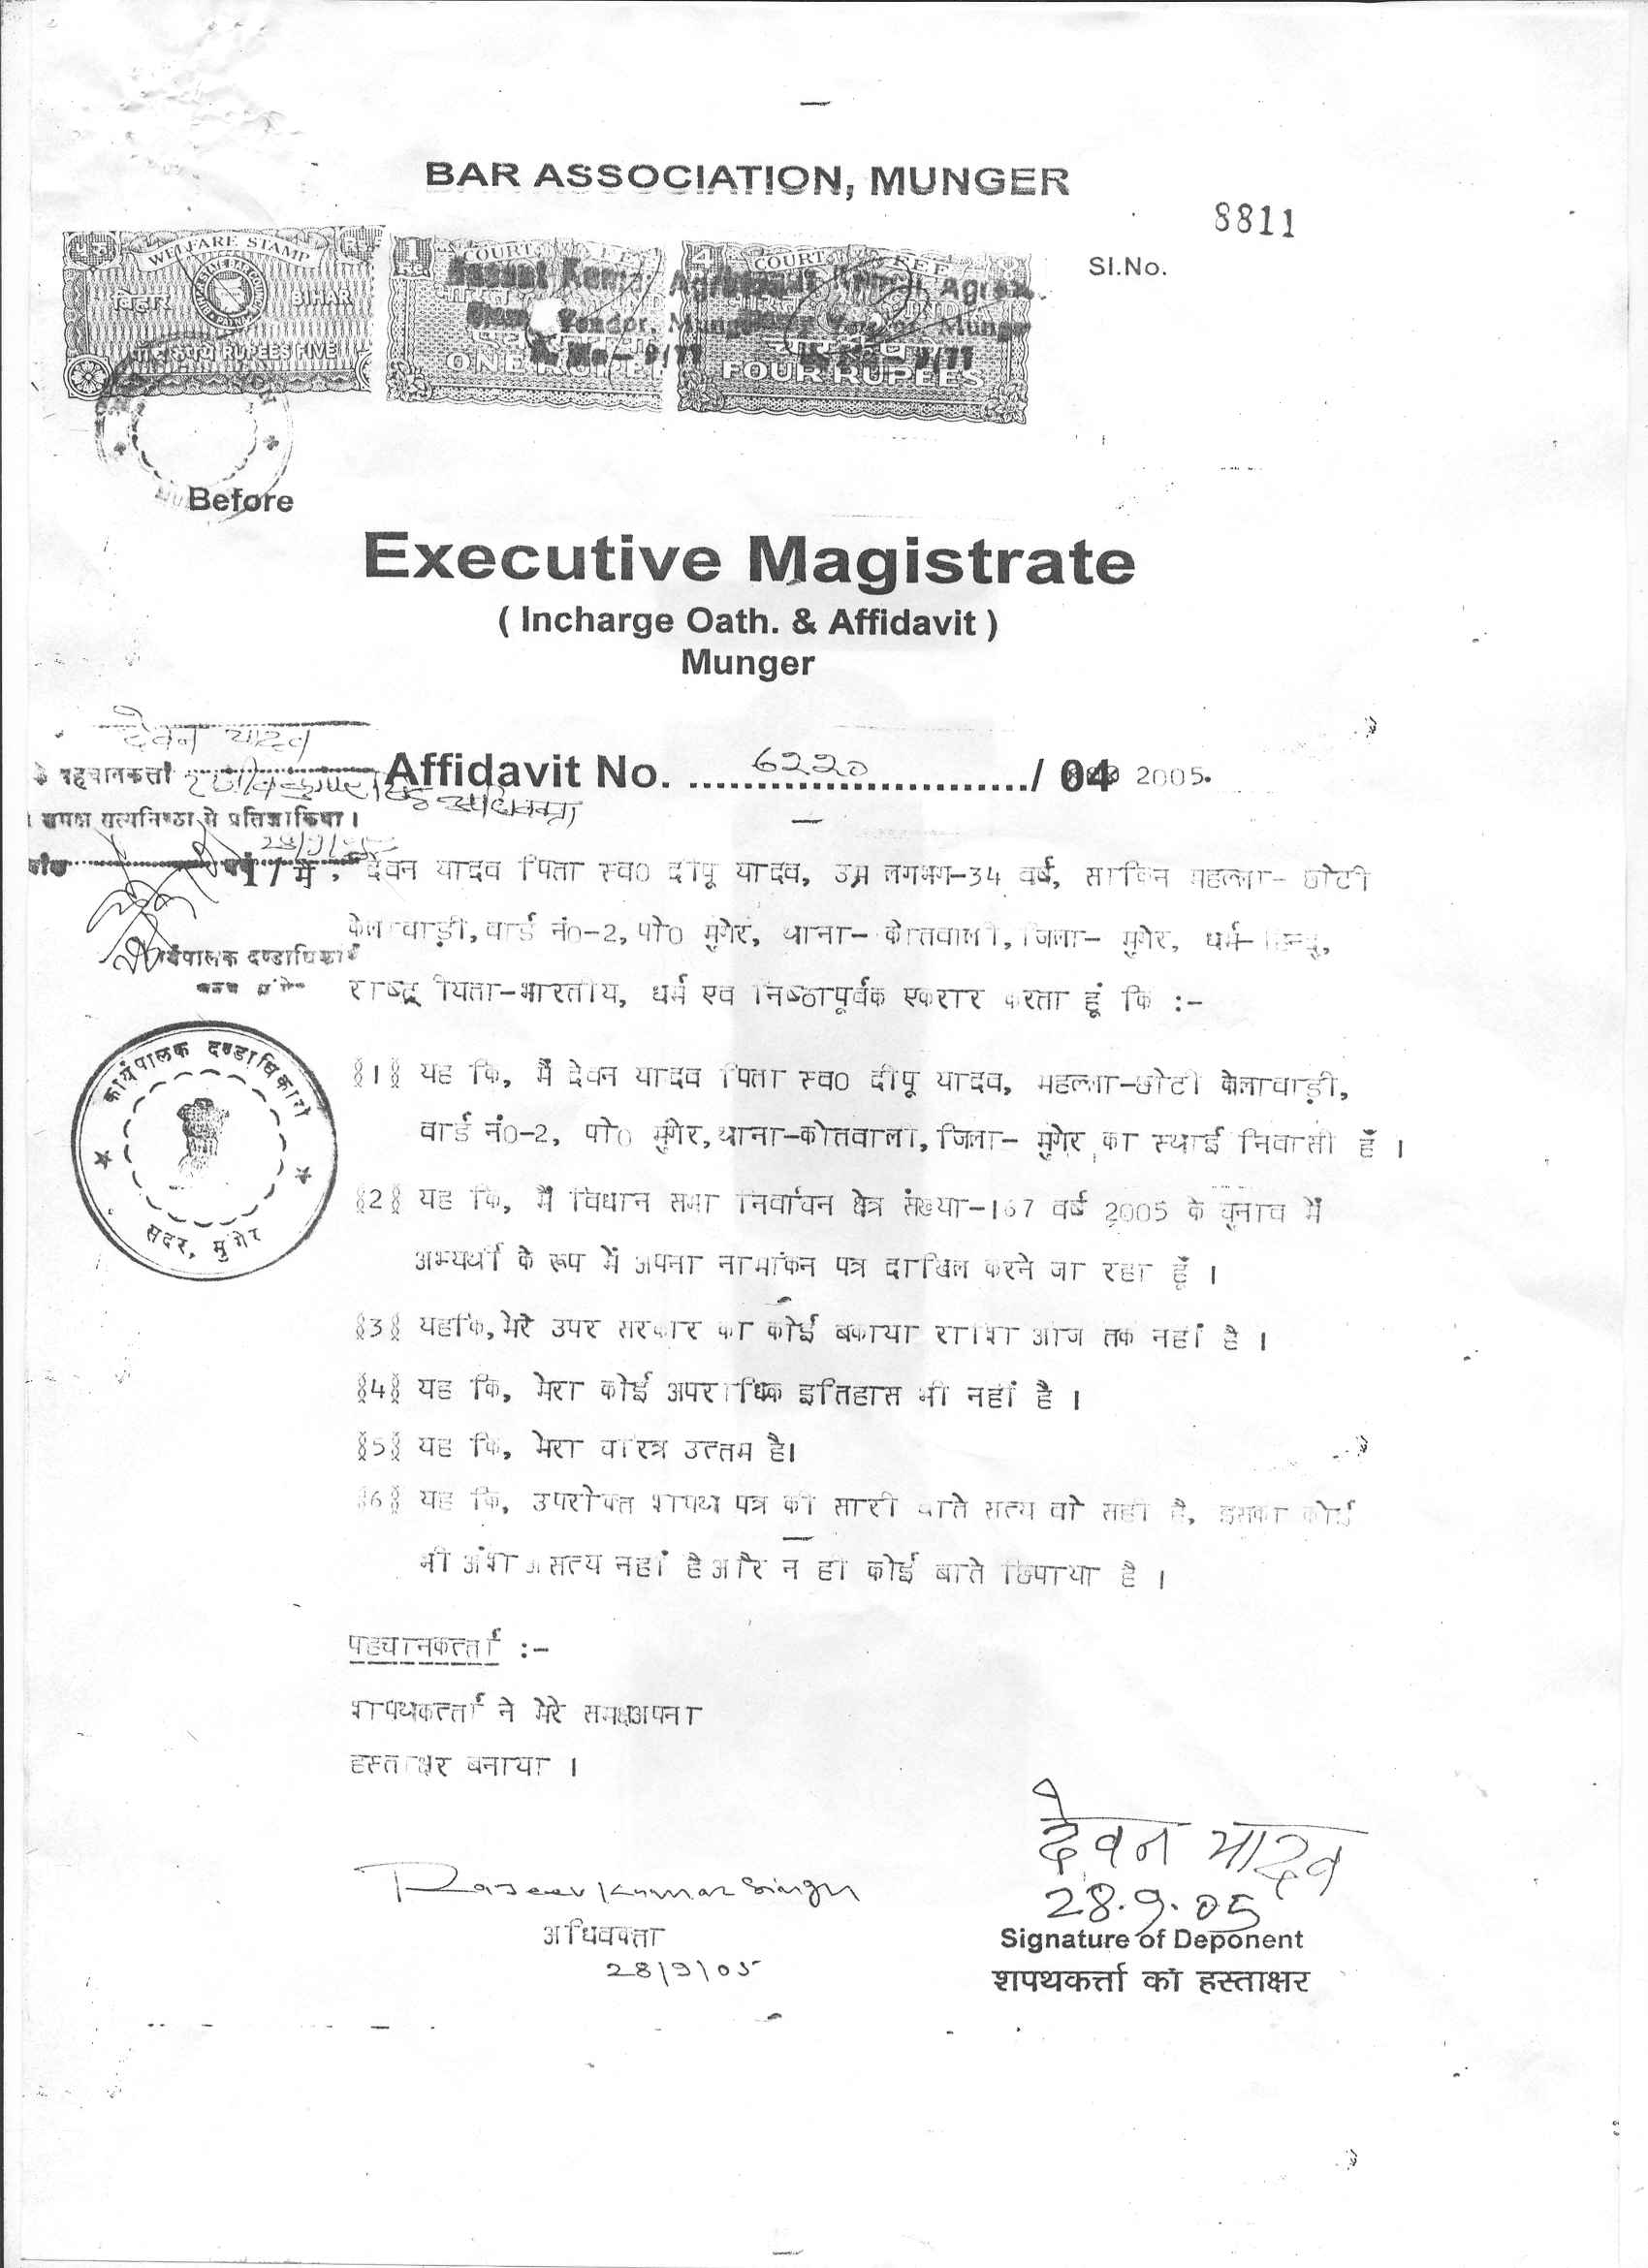 BAR ASSOCIATION, MUNGER
8811
SI.No.
WELFARE STAMP
बिहार BIHAR
पाँच रुपये RUPEES FIVE
1 COURT FEE
ONE RUPEE
4 COURT FEE
भारत INDIA
चार रुपये
FOUR RUPEES
Agrawal
Stamp Vendor, Munger
9/77
Before
Executive Magistrate
( Incharge Oath. & Affidavit )
Munger
देवन यादव
के पहचानकर्त्ता राजीव कुमार सिंह अधिवक्ता
समक्ष सत्यनिष्ठा से प्रतिज्ञा किया ।
कार्यपालक दण्डाधिकारी
Affidavit No. 6220 / 04 2005.
मैं, देवन यादव पिता स्व0 दीपू यादव, उम्र लगभग-34 वर्ष, साकिन महल्ला- छोटी
केलावाड़ी, वार्ड नं0-2, पो0 मुंगेर, थाना- कोतवाली, जिला- मुंगेर, धर्म- हिन्दु,
राष्ट्रीयता-भारतीय, धर्म एवं निष्ठापूर्वक एकरार करता हूं कि :-
§1§ यह कि, मैं देवन यादव पिता स्व0 दीपू यादव, महल्ला-छोटी केलावाड़ी,
वार्ड नं0-2, पो0 मुंगेर, थाना-कोतवाली, जिला- मुंगेर का स्थाई निवासी हूँ ।
§2§ यह कि, मैं विधान सभा निर्वाचन क्षेत्र संख्या-167 वर्ष 2005 के चुनाव में
अभ्यर्थी के रूप में अपना नामांकन पत्र दाखिल करने जा रहा हूँ ।
§3§ यहकि, मेरे उपर सरकार का कोई बकाया राशि आज तक नहीं है ।
§4§ यह कि, मेरा कोई अपराधिक इतिहास भी नहीं है ।
§5§ यह कि, मेरा चरित्र उत्तम है।
§6§ यह कि, उपरोक्त शपथ पत्र की सारी बाते सत्य वो सही है, इसका कोई
भी अंश असत्य नहीं है और न ही कोई बाते छिपाया है ।
कार्यपालक दण्डाधिकारी
सदर, मुंगेर
पहचानकर्त्ता :-
शपथकर्त्ता ने मेरे समक्ष अपना
हस्ताक्षर बनाया ।
Rajeev Kumar Singh
अधिवक्ता
28/9/05
देवन यादव
28.9.05
Signature of Deponent
शपथकर्त्ता का हस्ताक्षर